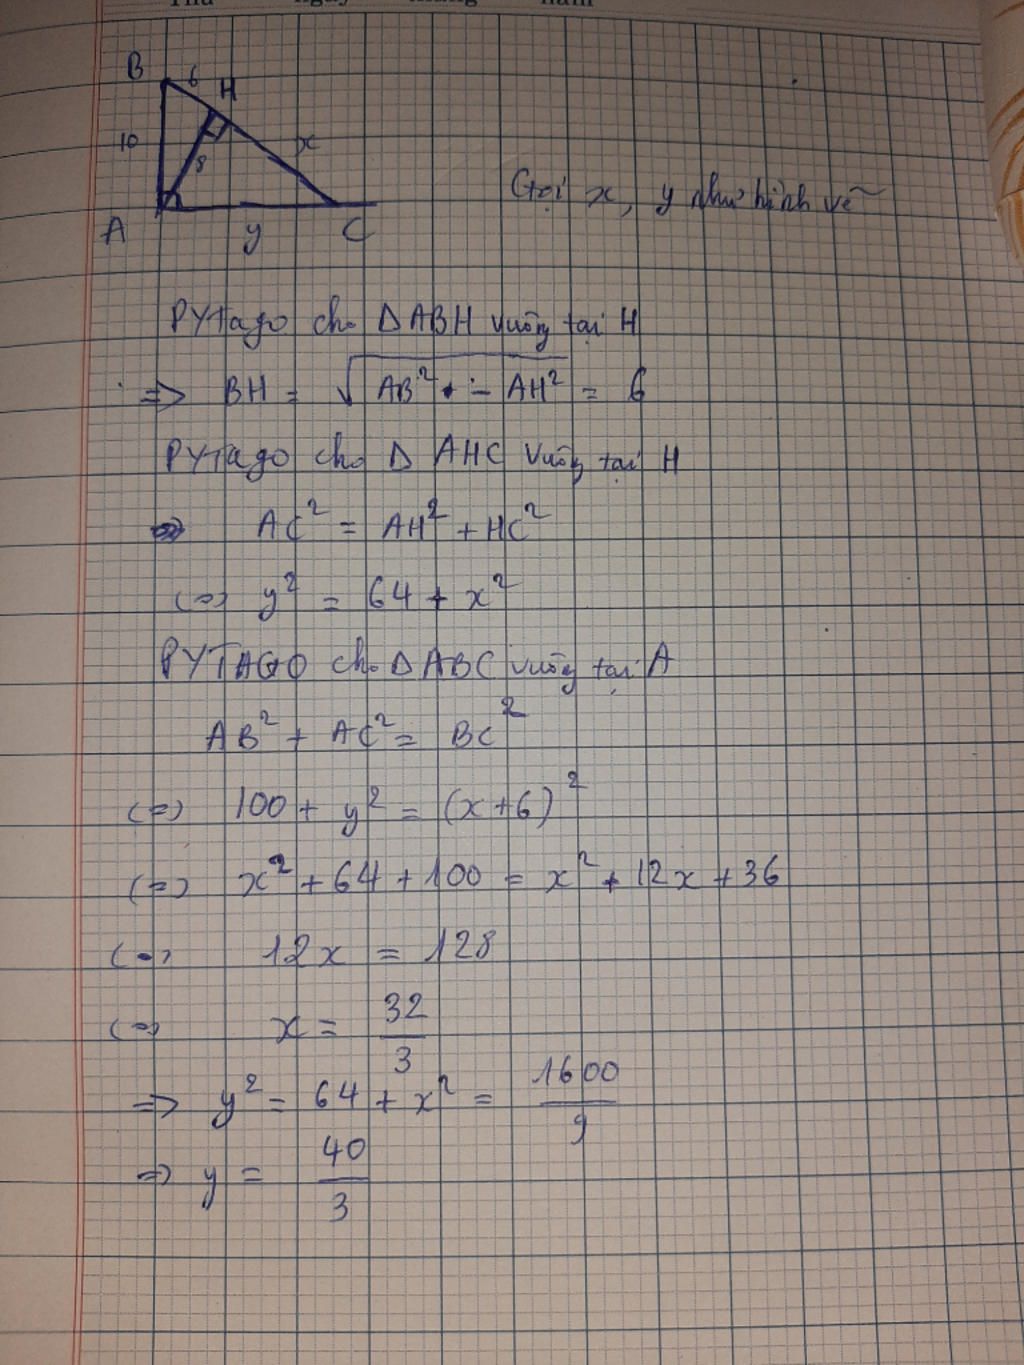 Thứ ngày tháng năm
B
6
H
10
8
x
A
y
C
Gọi x, y như hình vẽ
PYtago cho ΔABH vuông tại H
=> BH = √(AB² - AH²) = 6
PYtago cho Δ AHC vuông tại H
=> AC² = AH² + HC²
(=) y² = 64 + x²
PYTAGO cho ΔABC vuông tại A
AB² + AC² = BC²
(=) 100 + y² = (x+6)²
(=) x² + 64 + 100 = x² + 12x + 36
(=) 12x = 128
(=) x = 32/3
=> y² = 64 + x² = 1600/9
=> y = 40/3